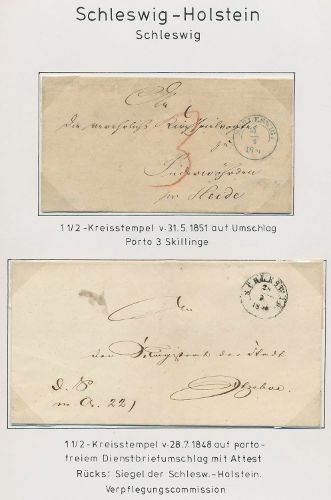 Schleswig-Holstein
Schleswig
An
die verehrliche Kirchspielvogtei
zu
3
Süderwöhrden
pr Heide
SCHLESWIG
1 1/2-Kreisstempel v. 31.5.1851 auf Umschlag
Porto 3 Skillinge
SCHLESWIG
An
den Magistrat der Stadt
Itzehoe
1 1/2-Kreisstempel v. 28.7.1848 auf porto-
freiem Dienstbriefumschlag mit Attest
Rücks: Siegel der Schlesw.-Holstein.
Verpflegungscommission